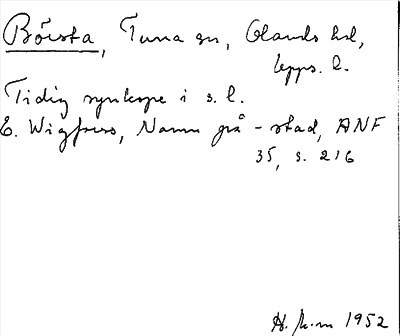 Böista, Tuna sn, Olands hd,
Upps. l.
Tidig synkope i s. l.
E. Wigforss, Namn på -stad, ANF
35, s. 216
1952